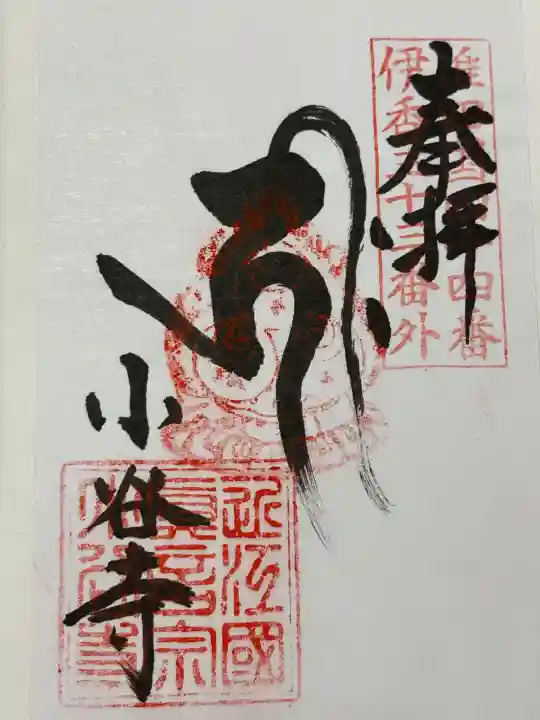 奉拝
伊香三十三番外
小谷寺
近江國
真言宗
小谷寺